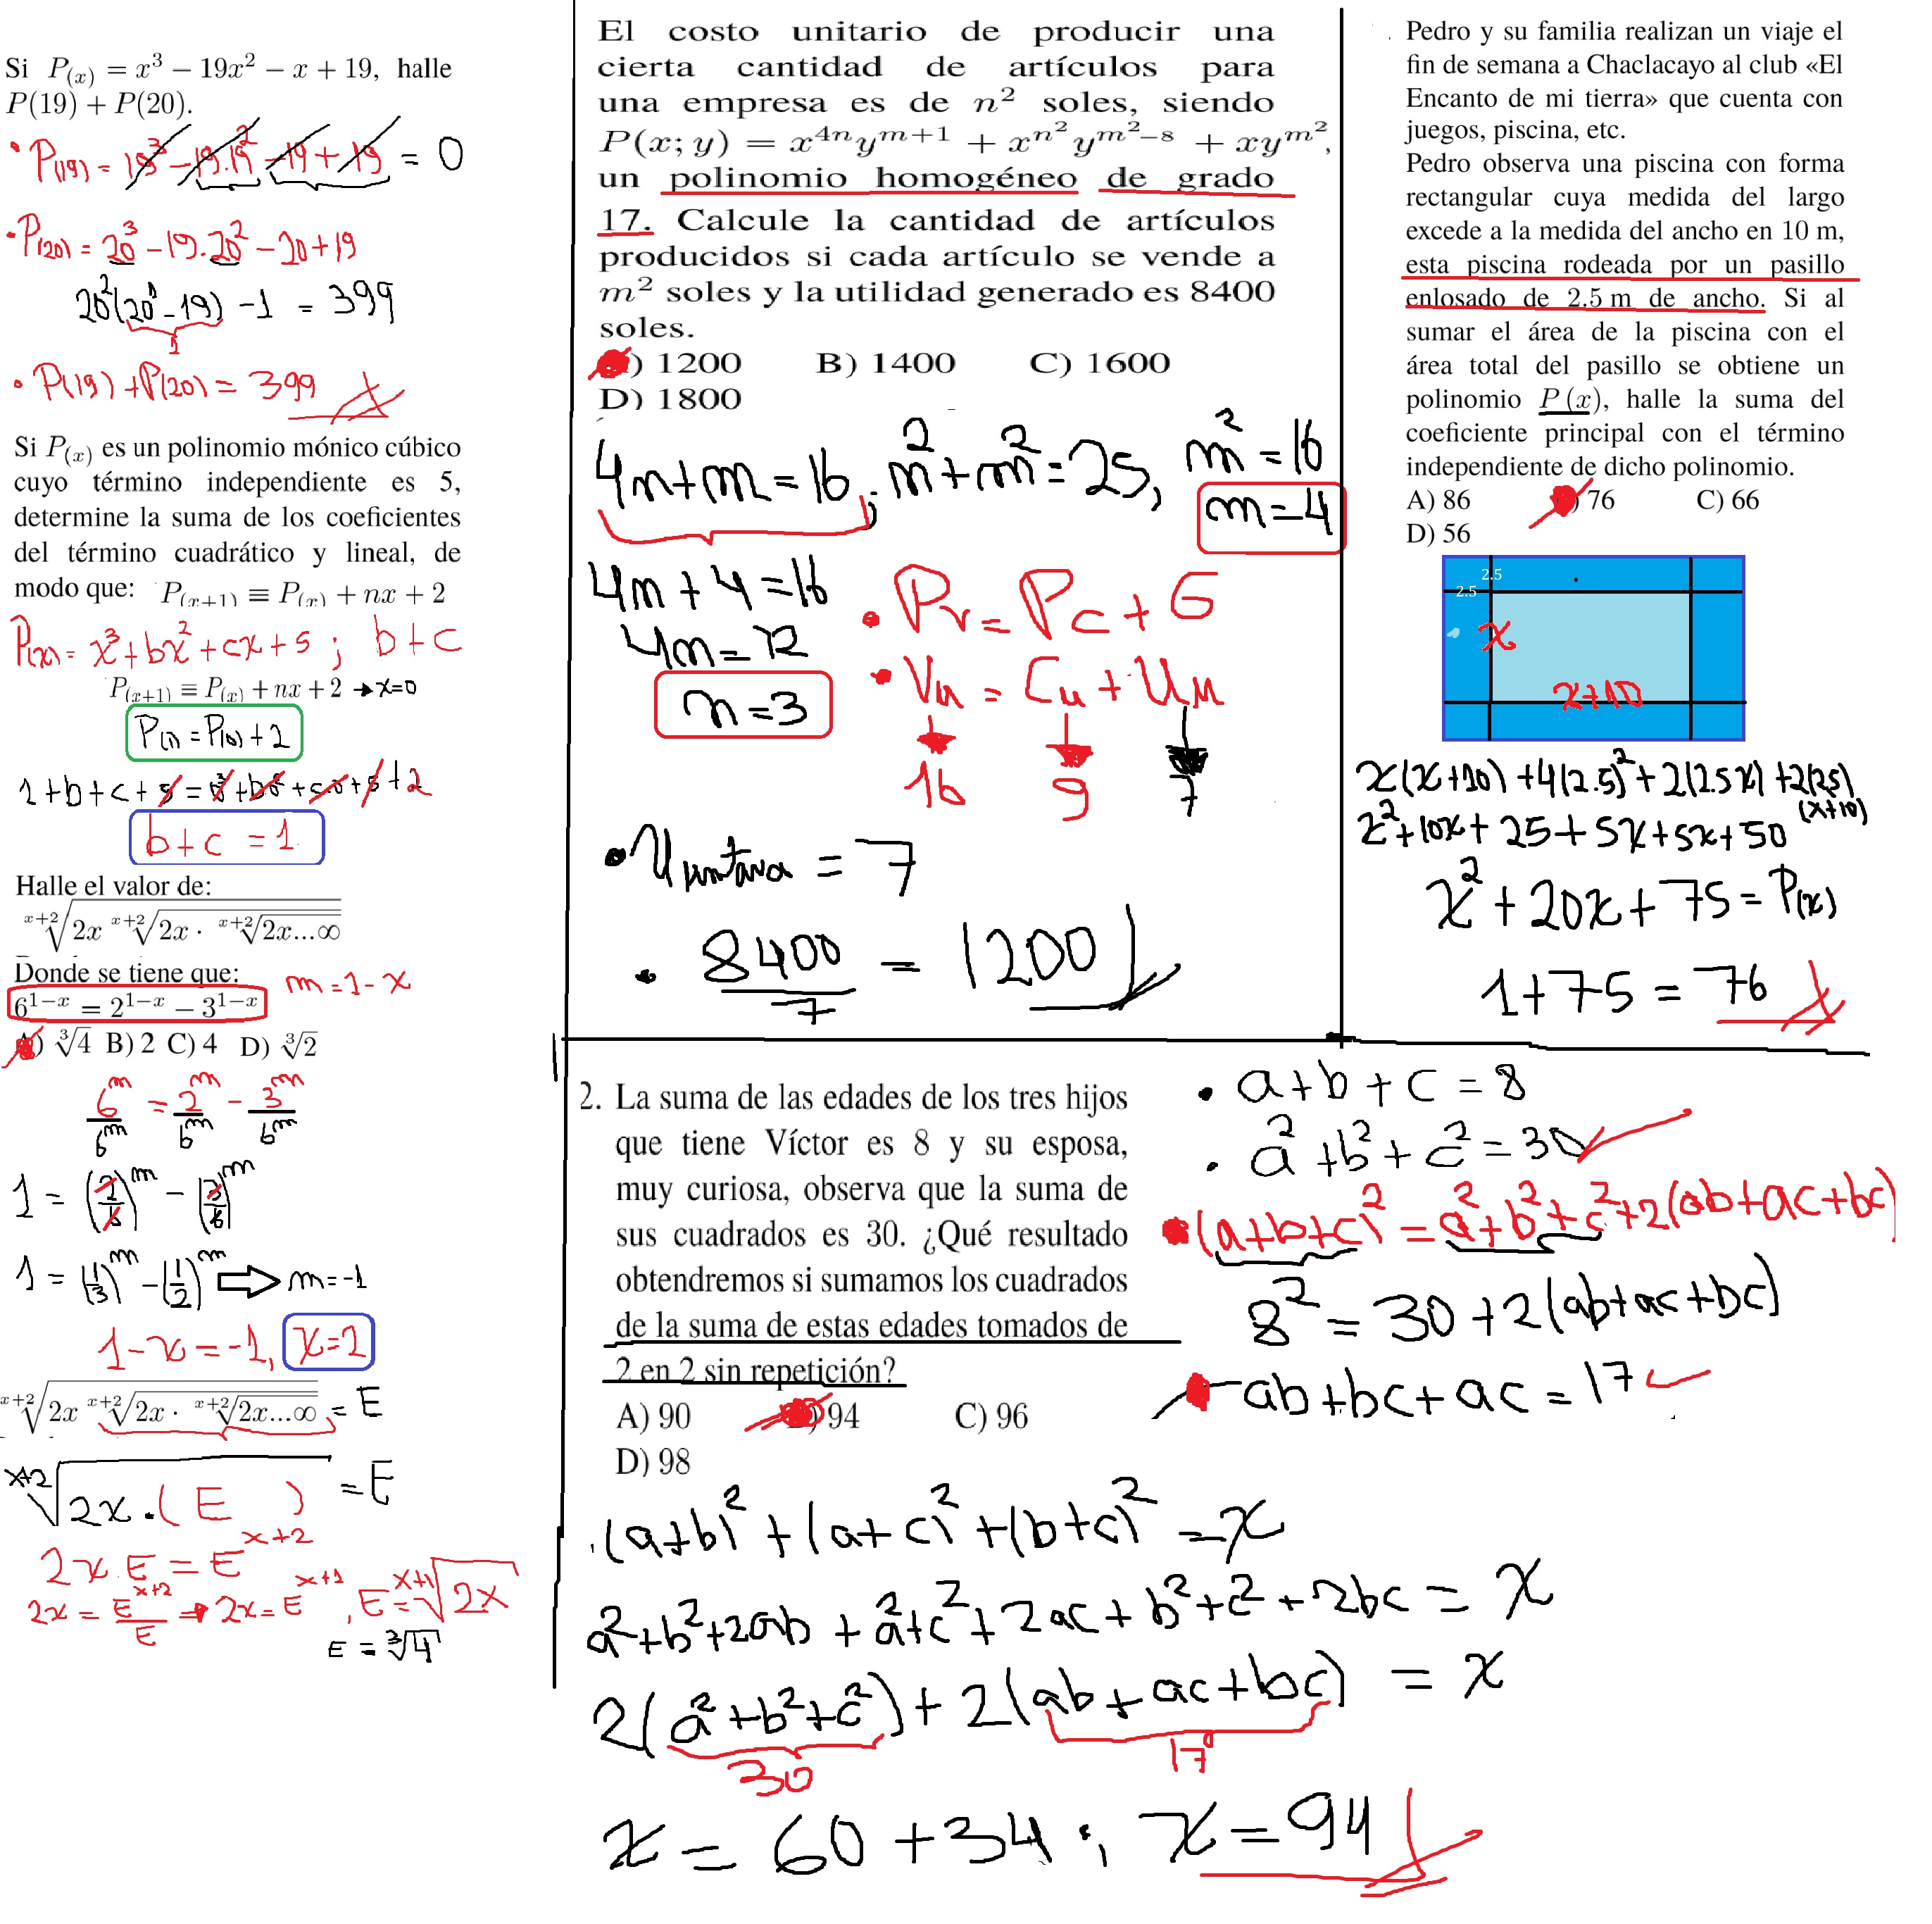 Si P₍ₓ₎ = x³ − 19x² − x + 19, halle
P(19) + P(20).
• P(19) = 19³ − 19.19² − 19 + 19 = 0
• P(20) = 20³ − 19.20² − 20 + 19
20²(20 − 19) − 1 = 399
1
• P(19) + P(20) = 399
Si P₍ₓ₎ es un polinomio mónico cúbico
cuyo término independiente es 5,
determine la suma de los coeficientes
del término cuadrático y lineal, de
modo que: P₍ₓ₊₁₎ ≡ P₍ₓ₎ + nx + 2
P(x) = x³ + bx² + cx + 5 ; b + c
P₍ₓ₊₁₎ ≡ P₍ₓ₎ + nx + 2 → x=0
P(1) = P(0) + 2
b + c = 1
Halle el valor de:
ˣ⁺²√2x ˣ⁺²√2x · ˣ⁺²√2x...∞
Donde se tiene que:
m = 1 − x
6¹⁻ˣ = 2¹⁻ˣ − 3¹⁻ˣ
) ∛4 B) 2 C) 4 D) ∛2
6ᵐ/6ᵐ = 2ᵐ/6ᵐ − 3ᵐ/6ᵐ
1 = (2/6)ᵐ − (3/6)ᵐ
1 = (1/3)ᵐ − (1/2)ᵐ ⇒ m = −1
1 − x = −1, x = 2
ˣ⁺²√2x ˣ⁺²√2x · ˣ⁺²√2x...∞ = E
ˣ⁺²√2x.(E) = E
2x.E = Eˣ⁺²
2x = Eˣ⁺²/E → 2x = Eˣ⁺¹, E = ˣ⁺¹√2x
E = ∛4
El costo unitario de producir una
cierta cantidad de artículos para
una empresa es de n² soles, siendo
P(x; y) = x⁴ⁿyᵐ⁺¹ + xⁿ²yᵐ²⁻⁸ + xyᵐ²,
un polinomio homogéneo de grado
17. Calcule la cantidad de artículos
producidos si cada artículo se vende a
m² soles y la utilidad generado es 8400
soles.
) 1200 B) 1400 C) 1600
D) 1800
4n+m = 16; n²+m² = 25, m² = 16
m = 4
4n + 4 = 16
4n = 12
n = 3
• Pv = Pc + G
• Vu = Cu + Uu
16 9 7
• Uunitaria = 7
• 8400/7 = 1200
Pedro y su familia realizan un viaje el
fin de semana a Chaclacayo al club «El
Encanto de mi tierra» que cuenta con
juegos, piscina, etc.
Pedro observa una piscina con forma
rectangular cuya medida del largo
excede a la medida del ancho en 10 m,
esta piscina rodeada por un pasillo
enlosado de 2.5 m de ancho. Si al
sumar el área de la piscina con el
área total del pasillo se obtiene un
polinomio P (x), halle la suma del
coeficiente principal con el término
independiente de dicho polinomio.
A) 86 ) 76 C) 66
D) 56
2.5
2.5
x
x+10
x(x+10) + 4(2.5)² + 2(2.5x) + 2(2.5)
(x+10)
x² + 10x + 25 + 5x + 5x + 50
x² + 20x + 75 = P(x)
1 + 75 = 76
2. La suma de las edades de los tres hijos
que tiene Víctor es 8 y su esposa,
muy curiosa, observa que la suma de
sus cuadrados es 30. ¿Qué resultado
obtendremos si sumamos los cuadrados
de la suma de estas edades tomados de
2 en 2 sin repetición?
A) 90 ) 94 C) 96
D) 98
• a + b + c = 8
• a² + b² + c² = 30
• (a+b+c)² = a²+b²+c²+2(ab+ac+bc)
8² = 30 + 2(ab+ac+bc)
ab+bc+ac = 17
(a+b)² + (a+c)² + (b+c)² = x
a²+b²+2ab + a²+c²+2ac + b²+c²+2bc = x
2(a²+b²+c²) + 2(ab+ac+bc) = x
30 17
x = 60 + 34 ; x = 94